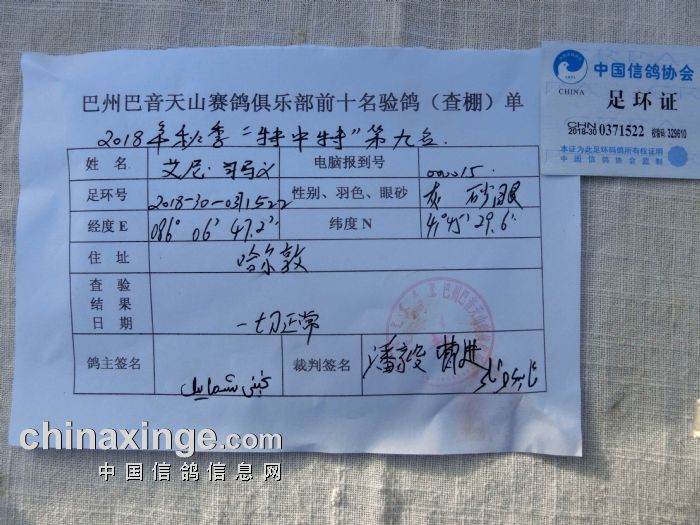 巴州巴音天山赛鸽俱乐部前十名验鸽（查棚）单
2018年秋季“特中特”第九名.
姓 名 艾尼·司马义 电脑报到号 000015
足环号 2018-30-0371522 性别、羽色、眼砂 灰 砂眼
经度E 086° 06′ 47.2″ 纬度N 41° 45′ 29.6″
住 址 哈尔敦
查 验
结 果
日 期
一切正常
鸽主签名
裁判签名 潘毅
中国信鸽协会
CHINA
足环证
CHN
2018-30 0371522 校验码 329610
本证为此足环码鸽所有权证明
中国信鸽协会监制
chinaxinge.com
中国信鸽信息网